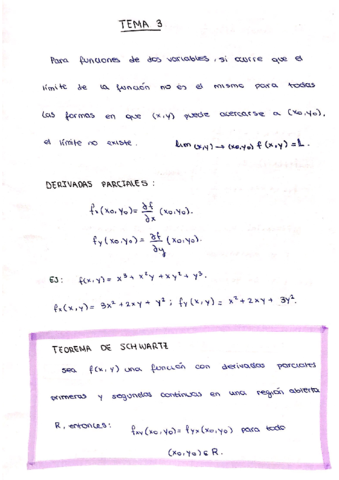 TEMA 3
Para funciones de dos variables, si ocurre que el
límite de la función no es el mismo para todas
las formas en que (x,y) puede acercarse a (x0,y0),
el límite no existe. lim (x,y)→(x0,y0) f(x,y)=L.
DERIVADAS PARCIALES:
fx(x0,y0)= ∂f/∂x (x0,y0).
fy(x0,y0)= ∂f/∂y (x0,y0).
EJ: f(x,y)= x³+ x²y +xy²+ y³.
fx(x,y)= 3x²+2xy + y² ; fy(x,y)= x²+2xy+ 3y².
TEOREMA DE SCHWARTZ
sea f(x,y) una función con derivadas parciales
primeras y segundas continuas en una región abierta
R, entonces: fxy(x0,y0)=fyx(x0,y0) para todo
(x0,y0)∈R.